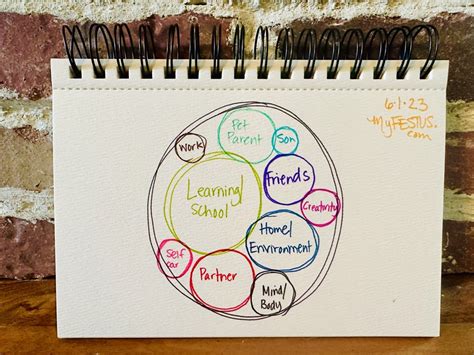 6-1-23
MyFESTUS.
com
Pet
Parent
Son
Work
Friends
Learning/
School
Creativity
Home/
Environment
Self
Car
Partner
Mind/
Body